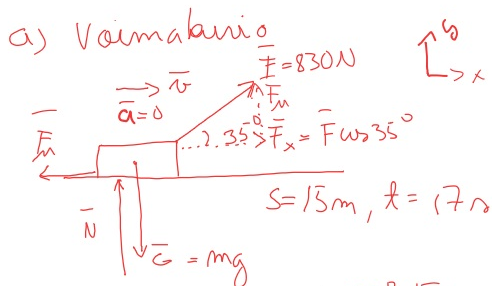 a) Voimakuvio
F̅ = 830N
y
x
v̅
a̅=0
F̅μ
35° F̅x = F̅ cos35°
S=15m, t = 17s
N̅
G̅ = mg